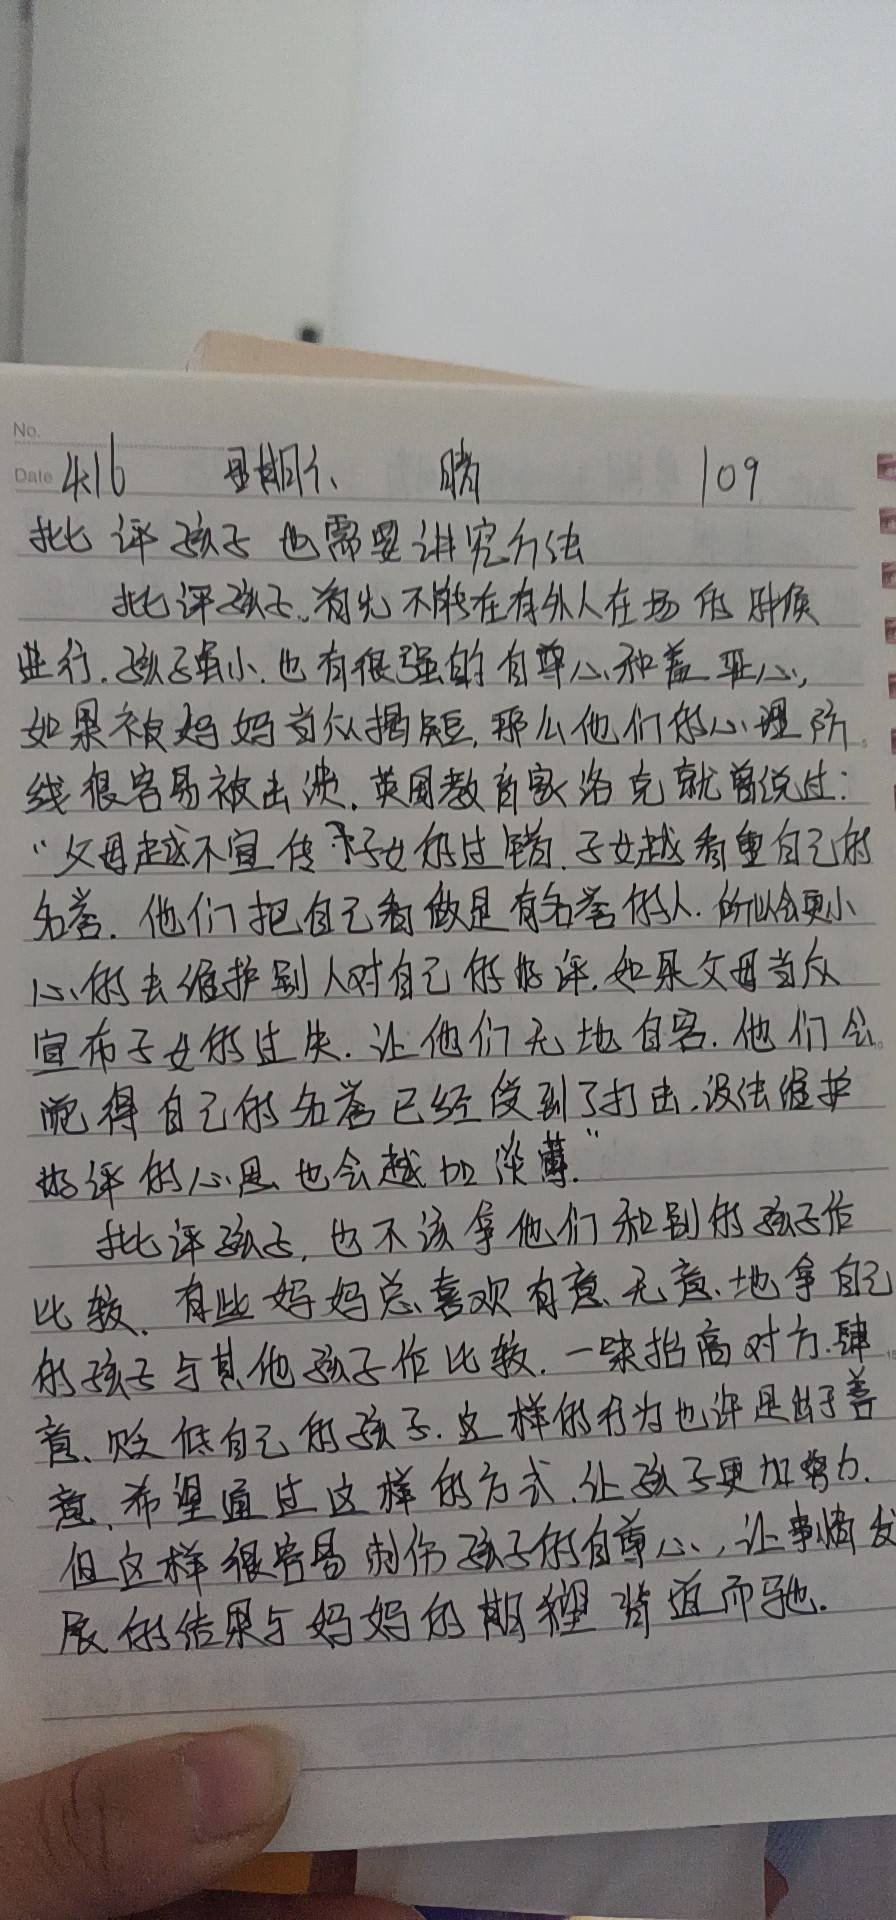 No.
Date 4.16 星期六 晴 109
批评孩子也需要讲究方法
批评孩子,首先不能在有外人在场的时候
进行.孩子虽小.也有很强的自尊心和羞耻心,
如果被妈妈当众揭短,那么他们的心理防
线很容易被击溃.英国教育家洛克就曾说过:
“父母越不宣传子女的过错.子女越看重自己的
名誉.他们把自己看做是有名誉的人.所以会更小
心的去维护别人对自己的好评.如果父母当众
宣布子女的过失.让他们无地自容.他们会
觉得自己的名誉已经受到了打击.设法维护
好评的心思也会越加淡薄.”
批评孩子,也不该拿他们和别的孩子作
比较.有些妈妈总喜欢有意、无意、地拿自己
的孩子与其他孩子作比较.一味抬高对方.肆
意、贬低自己的孩子.这样的行为也许是出于善
意,希望通过这样的方式.让孩子更加努力.
但这样很容易刺伤孩子的自尊心,让事情发
展的结果与妈妈的期望背道而驰.